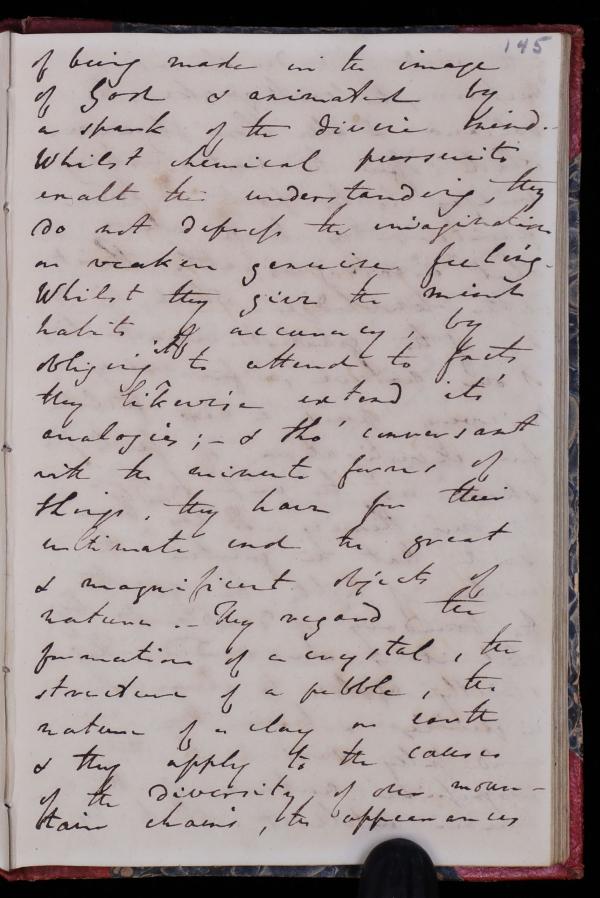 145
of being made in the image
of God & animated by
a spark of the divine mind.
Whilst chemical pursuits
exalt the understanding, they
do not depress the imagination
or weaken genuine feeling.
Whilst they give the mind
habits of accuracy, by
obliging it to attend to facts,
they likewise extend its
analogies; - & tho' conversant
with the minute forms of
things, they have for their
ultimate end the great
& magnificent objects of
nature. - They regard the
formation of a crystal, the
structure of a pebble, the
nature of a clay or earth
& they apply to the causes
of the diversity of our moun-
tain chains, the appearances